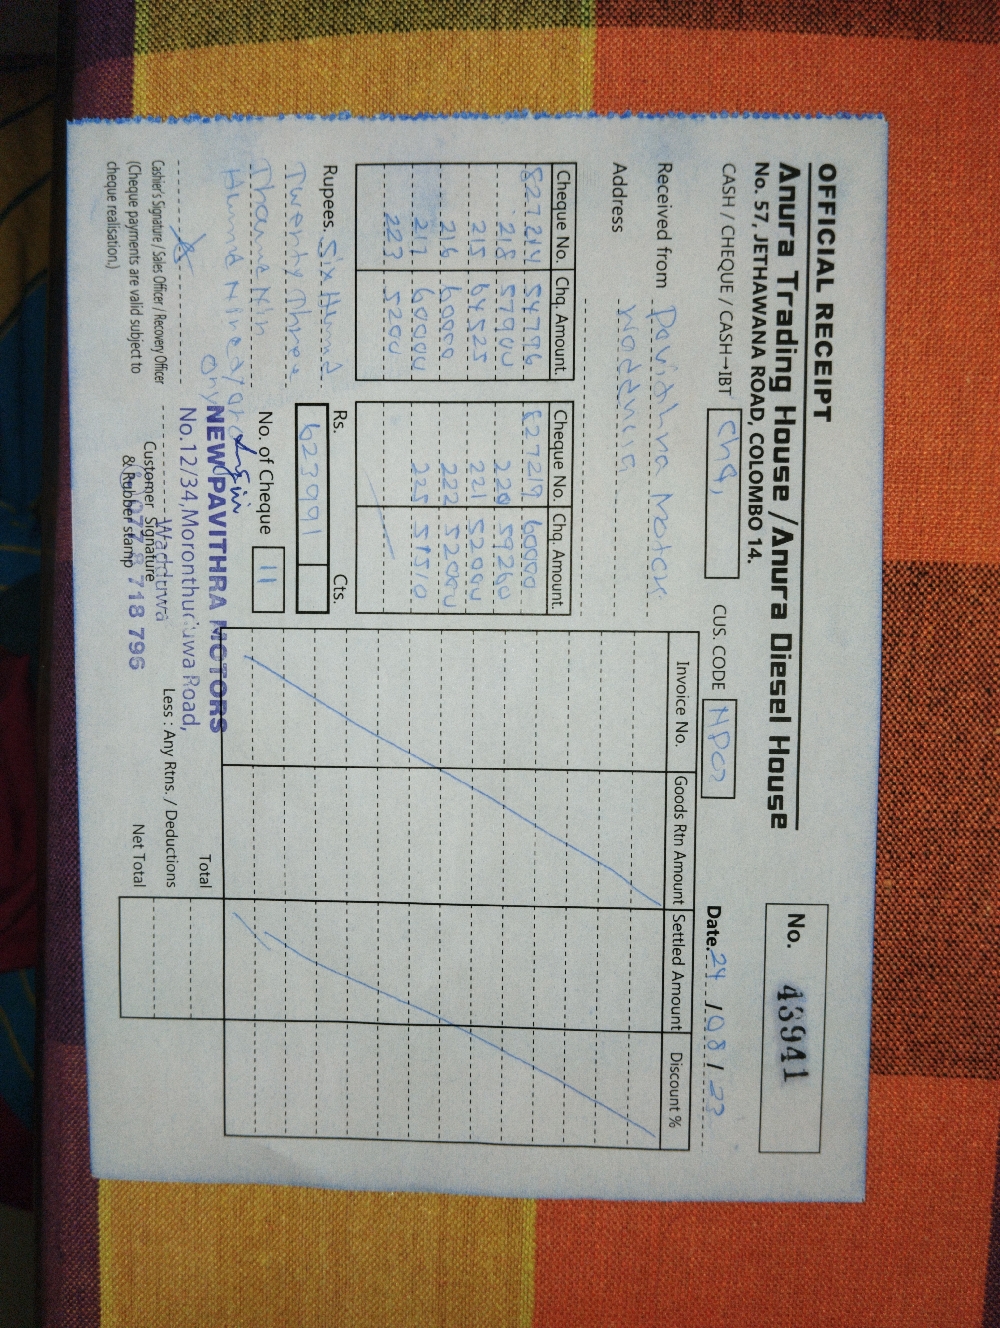 OFFICIAL RECEIPT
Anura Trading House / Anura Diesel House
No. 57, JETHAWANA ROAD, COLOMBO 14.
No. 43941
CASH / CHEQUE / CASH→IBT Chq,
CUS. CODE NP07
Date. 24 / 08 / 23
Received from Pavithra Motors
Address Wadduwa
Cheque No. Chq. Amount.
827214 54796
218 57900
215 64525
216 60000
217 60000
223 52000
Cheque No. Chq. Amount.
827219 60000
220 59260
221 52000
222 52000
225 51510
Invoice No. Goods Rtn Amount Settled Amount Discount %
Rupees. Six Hund
Twenty Three
Thaune Nin
Hund Ninety and
Only
Rs. Cts.
623991
No. of Cheque 11
NEW PAVITHRA MOTORS
No.12/34, Moronthuduwa Road,
Wadduwa
077 8 718 796
Cashier's Signature / Sales Officer / Recovery Officer
(Cheque payments are valid subject to
cheque realisation.)
Customer Signature
& Rubber stamp
Total
Less : Any Rtns. / Deductions
Net Total